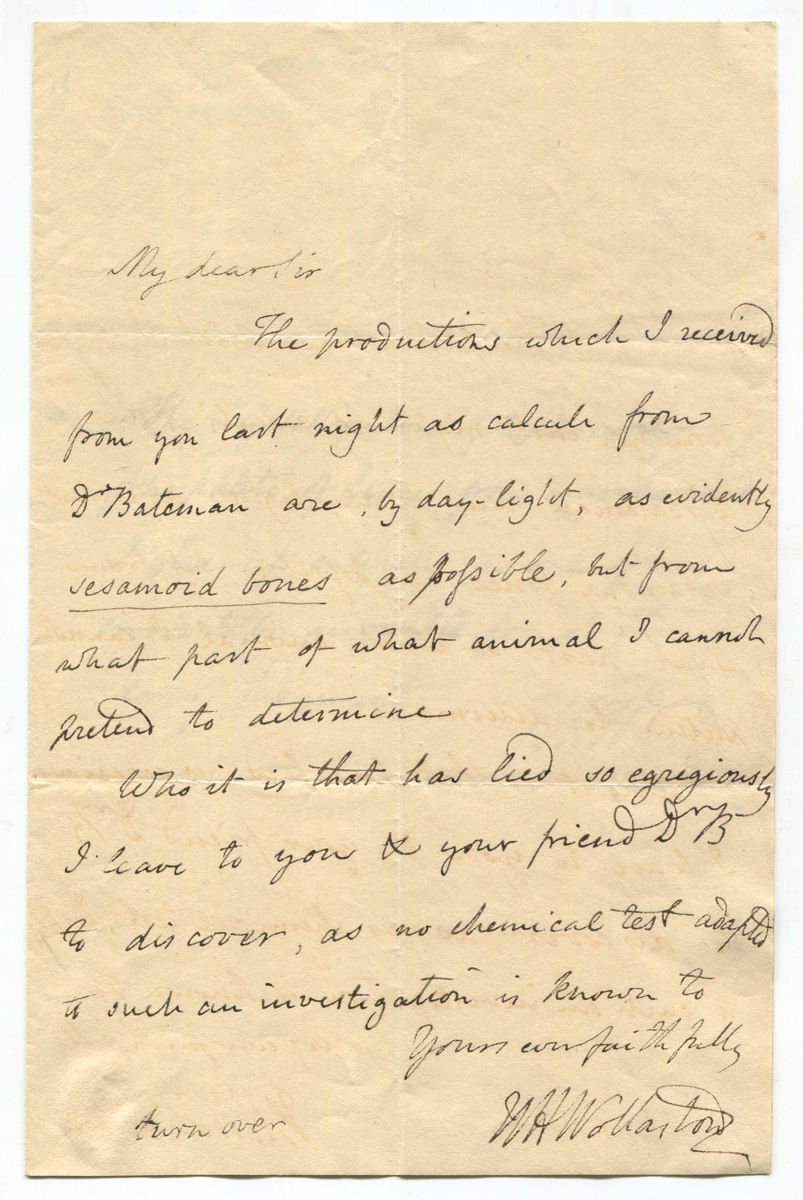 My dear Sir
The productions which I received
from you last night as calculi from
Dr Bateman are, by day-light, as evidently
sesamoid bones as possible, but from
what part of what animal I cannot
pretend to determine
Who it is that has lied so egregiously
I leave to you & your friend Dr B
to discover, as no chemical test adapted
to such an investigation is known to
Yours ever faithfully
WH Wollaston
turn over